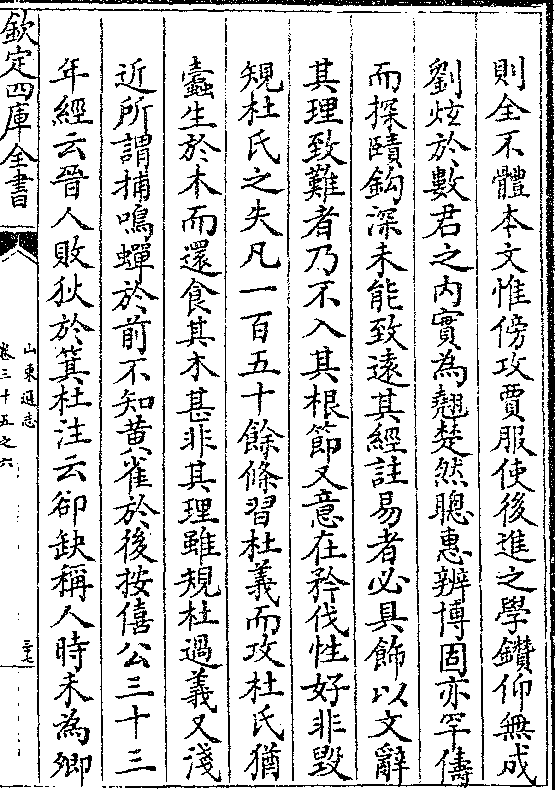 則全不體本文惟傍攻賈服使後進之學鑽仰無成
劉炫於數君之內實為翹楚然聰惠辨博固亦罕儔
而探賾鈎深未能致遠其經註易者必具飾以文辭
其理致難者乃不入其根節又意在矜伐性好非毀
規杜氏之失凡一百五十餘條習杜義而攻杜氏猶
蠧生於木而還食其木甚非其理雖規杜過義又淺
近所謂捕鳴蟬於前不知黄雀於後按僖公三十三
年經云晉人敗狄於箕杜注云郤缺稱人時未為卿
欽定四庫全書
山東通志
卷三十五之六
三十七